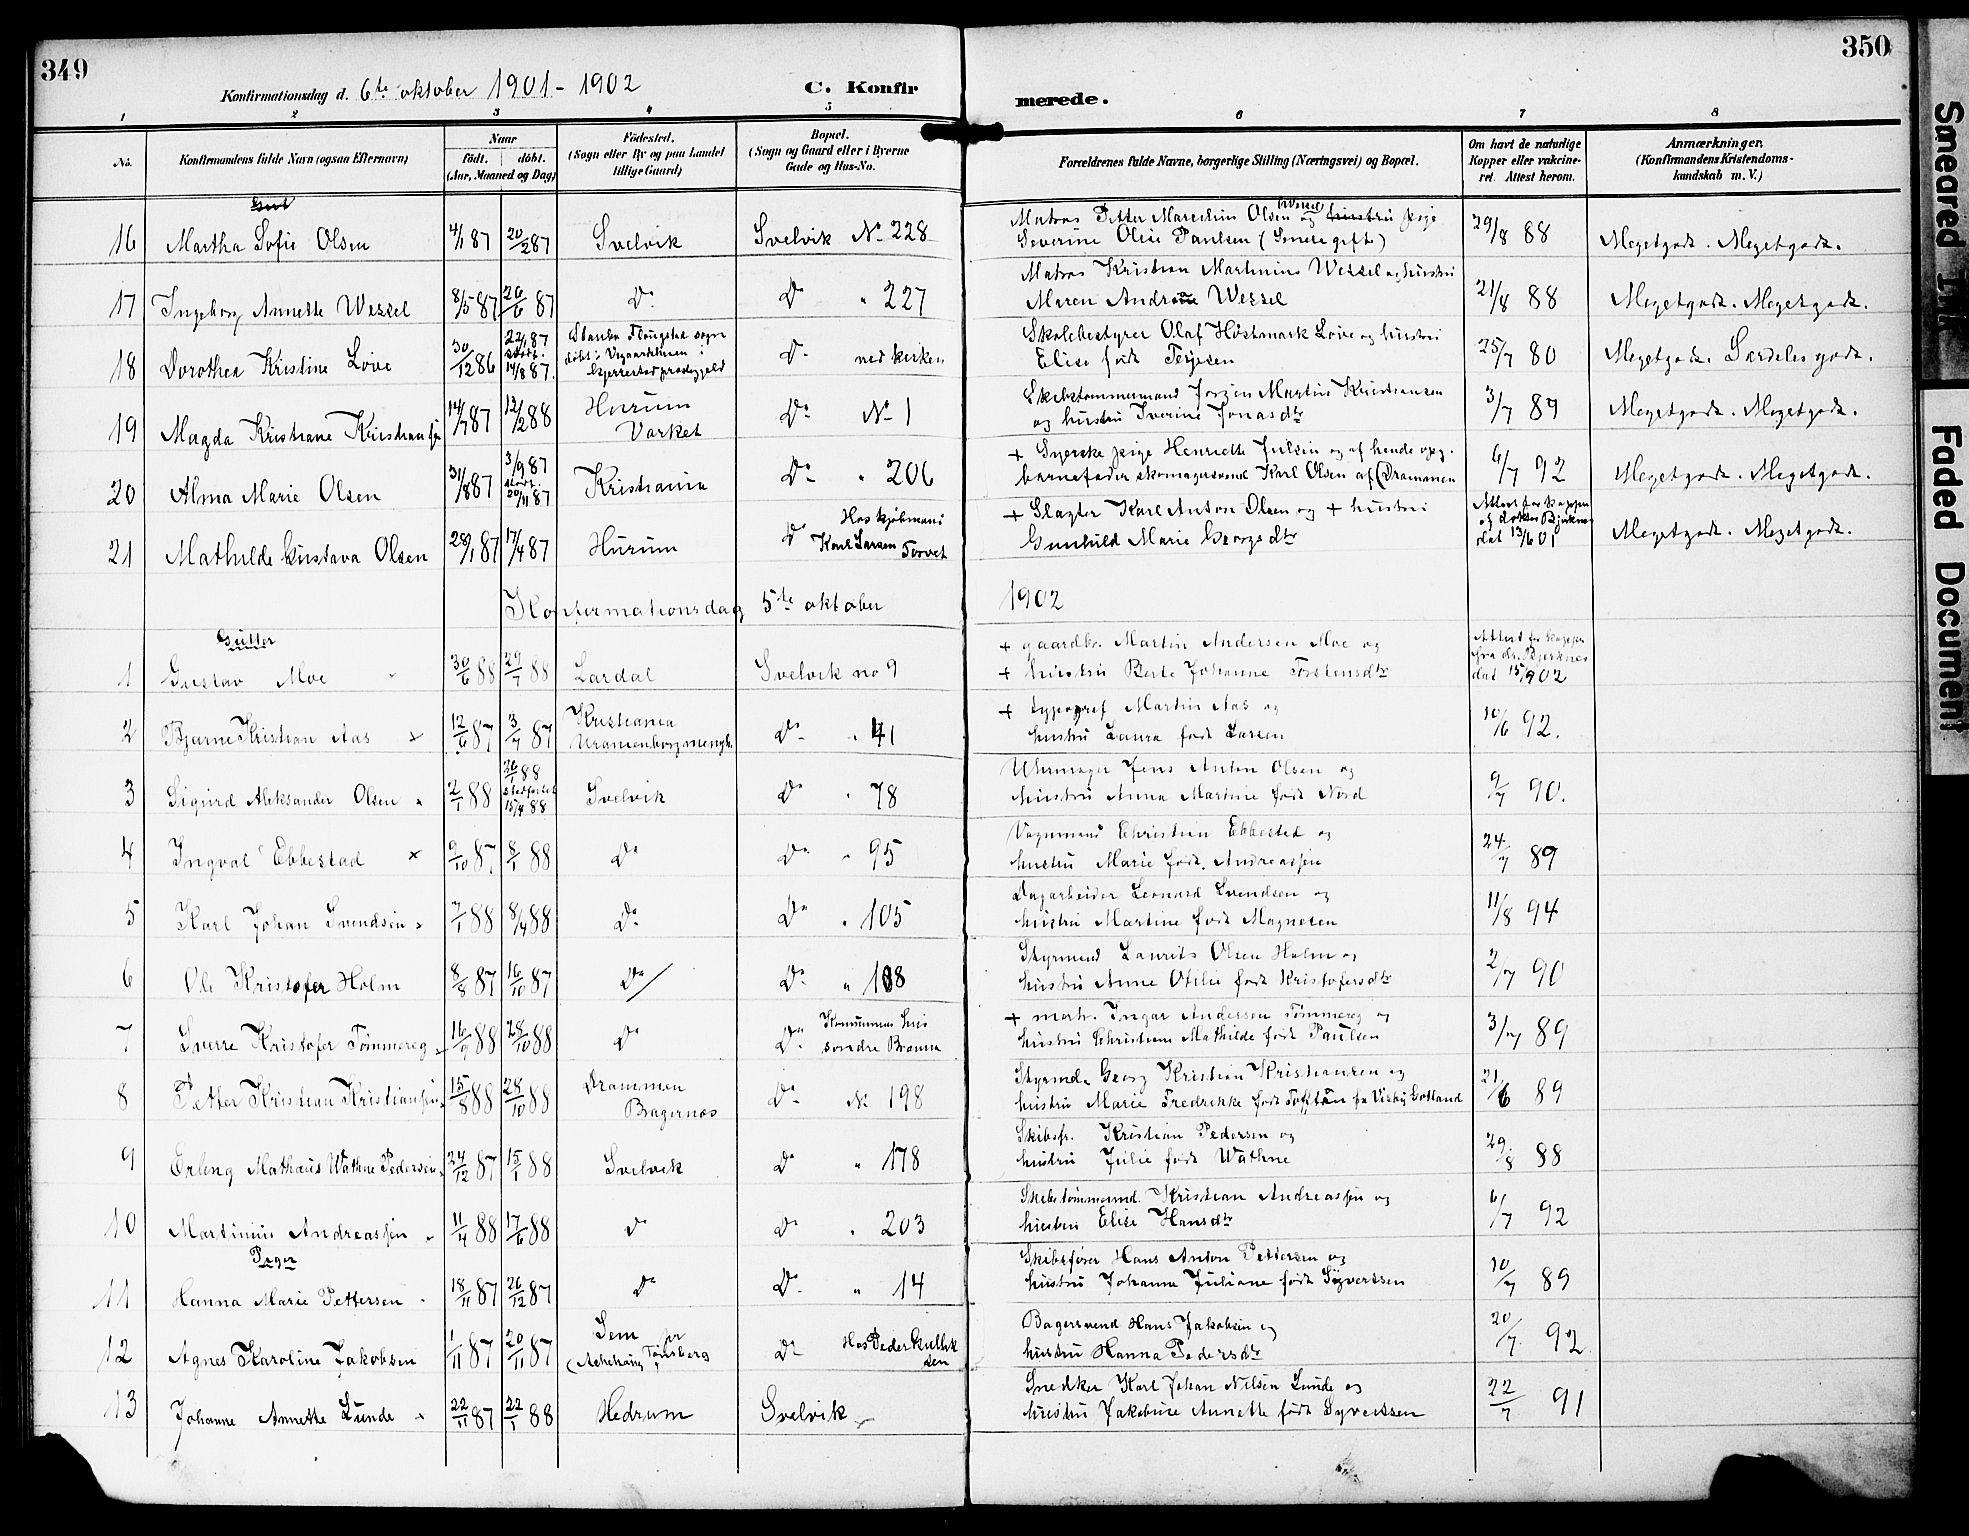 349
350
Konfirmationsdag d. 6te oktober 1901 - 1902
C. Konfir
merede.
1 2 3 4 5 6 7 8
No.
Konfirmandens fulde Navn (ogsaa Efternavn)
Naar
födt. döbt.
(Aar, Maaned og Dag)
Födested.
(Sogn eller By og paa Landet
tillige Gaard)
Bopæl.
(Sogn og Gaard eller i Byerne
Gade og Hus-No.
Forældrenes fulde Navne, borgerlige Stilling (Næringsvei) og Bopæl.
Om havt de naturlige
Kopper eller vakcine-
ret. Attest herom.
Anmærkninger.
(Konfirmandens Kristendoms-
kundskab m. V.)
16 Martha Sofie Olsen 4/1 87 20/2 87 Svelvik Svelvik No 228
Matros Petter Maredius Olsen og hustru pige
Severine Olise Paulsen (Senere gifte) 29/8 88 Megetgodt. Megetgodt.
17 Ingeborg Annette Wessel 8/5 87 26/6 87 Do Do " 227
Matros Kristian Martinius Wessel og hustru
Maren Andrea Wessel 21/8 88 Megetgodt. Megetgodt.
18 Dorothea Kristine Løve 30/12 86 22/1 87 stadf. 14/8 87.
döbt i
Do ved kirken
Skolebestyrer Olaf Høstmark Løve og hustru
Elise födt Terjesen 25/7 80 Megetgodt. Særdelesgodt.
19 Magda Kristiane Kristiansen 14/7 87 12/2 88 Hurum
Varket Do No 1
Skibstømmermand Jørgen Martin Kristiansen
og hustru Iverine Jonasdtr 3/7 89 Megetgodt. Megetgodt.
20 Alma Marie Olsen 31/8 87 3/9 87 stadf. 20/11 87 Kristiania Do " 206
+ Syerske pige Henriette Julsen og af hende opg.
barnefader skomagersvend Karl Olsen af Drammen 6/7 92 Megetgodt. Megetgodt.
21 Mathilde Gustava Olsen 28/1 87 17/4 87 Hurum Do Hos kjøbmand
Karl Larsen Torvet
+ Slagter Karl Anton Olsen og + hustru
Gunhild Marie Georgsdtr
Attest for kopper
og dokter Bjerknes
dat 13/6 01 Megetgodt. Megetgodt.
Konfirmationsdag 5te oktober 1902
Gutter
1 Gustav Moe 30/6 88 29/7 88 Lardal Svelvik no 9
+ gaardbr. Martin Andersen Moe og
+ hustru Berte Johanne Torstensdtr
Attest for kopper
fra dr. Bjerknes
dat 15/9 02
2 Bjarne Kristian Aas x 12/6 87 3/7 87 Kristiania
Uranienborg menigh. Do " 41
+ typograf Martin Aas og
hustru Laura født Larsen 10/6 92.
3 Sigurd Aleksander Olsen x 2/1 88 26/1 88 stadfæstet 15/4 88 Svelvik Do " 78
Uhrmager Jens Anton Olsen og
hustru Anna Martine født Nord 9/7 90.
4 Ingval Ebbestad x 9/10 87 8/1 88 Do Do " 95
Vognmand Christian Ebbestad og
hustru Marie født. Andreassen 24/7 89
5 Karl Johan Svendsen x 7/1 88 8/4 88 Do Do " 105
Dagarbeider Leonard Svendsen og
hustru Martine født Magnesen 11/8 94
6 Ole Kristofer Holm 8/8 87 16/10 87 Do Do " 108
Styrmand Laurits Olsen Holm og
hustru Anne Otilie født Kristofersdtr 2/7 90
7 Sverre Kristofer Tömmereg 16/9 88 28/10 88 Do Do Kommunens hus
søndre Brenna
+ matr. Ingar Andersen Tömmereg og
hustru Christiane Mathilde født Paulsen 3/7 89
8 Petter Kristian Kristiansen 15/8 88 28/10 88 Drammen
Bagernæs Do No 198
Styrmd. Georg Kristian Kristiansen og
hustru Marie Fredrikke født Tofftén fra Visby Gotland 21/6 89
9 Erling Mathæus Wathne Pedersen 24/12 87 15/1 88 Svelvik Do " 178
Skibsfr. Kristian Pedersen og
hustru Julie født Wathne 29/8 88
10 Martinius Andreassen 11/4 88 17/6 88 Do Do " 203
Skibstømmermd. Kristian Andreassen og
hustru Elise Hansdtr 6/7 92
Piger
11 Hanna Marie Pettersen 18/11 87 26/12 87 Do Do " 14
Skibsfører Hans Anton Pettersen og
hustru Johanne Juliane født Syvertsen 10/7 89
12 Agnes Karoline Jakobsen 1/11 87 20/11 87 Sem
Tønsberg Do Hos Peder
Bagersvend Hans Jakobsen og
hustru Hanna Pedersdtr 20/7 92
13 Johanne Annette Lunde x 22/11 87 22/1 88 Hedrum Svelvik
Snedker Karl Johan Nilsen Lunde og
hustru Jakobine Annette født Syvertsen 22/7 91
Smeared Ink
Faded Document